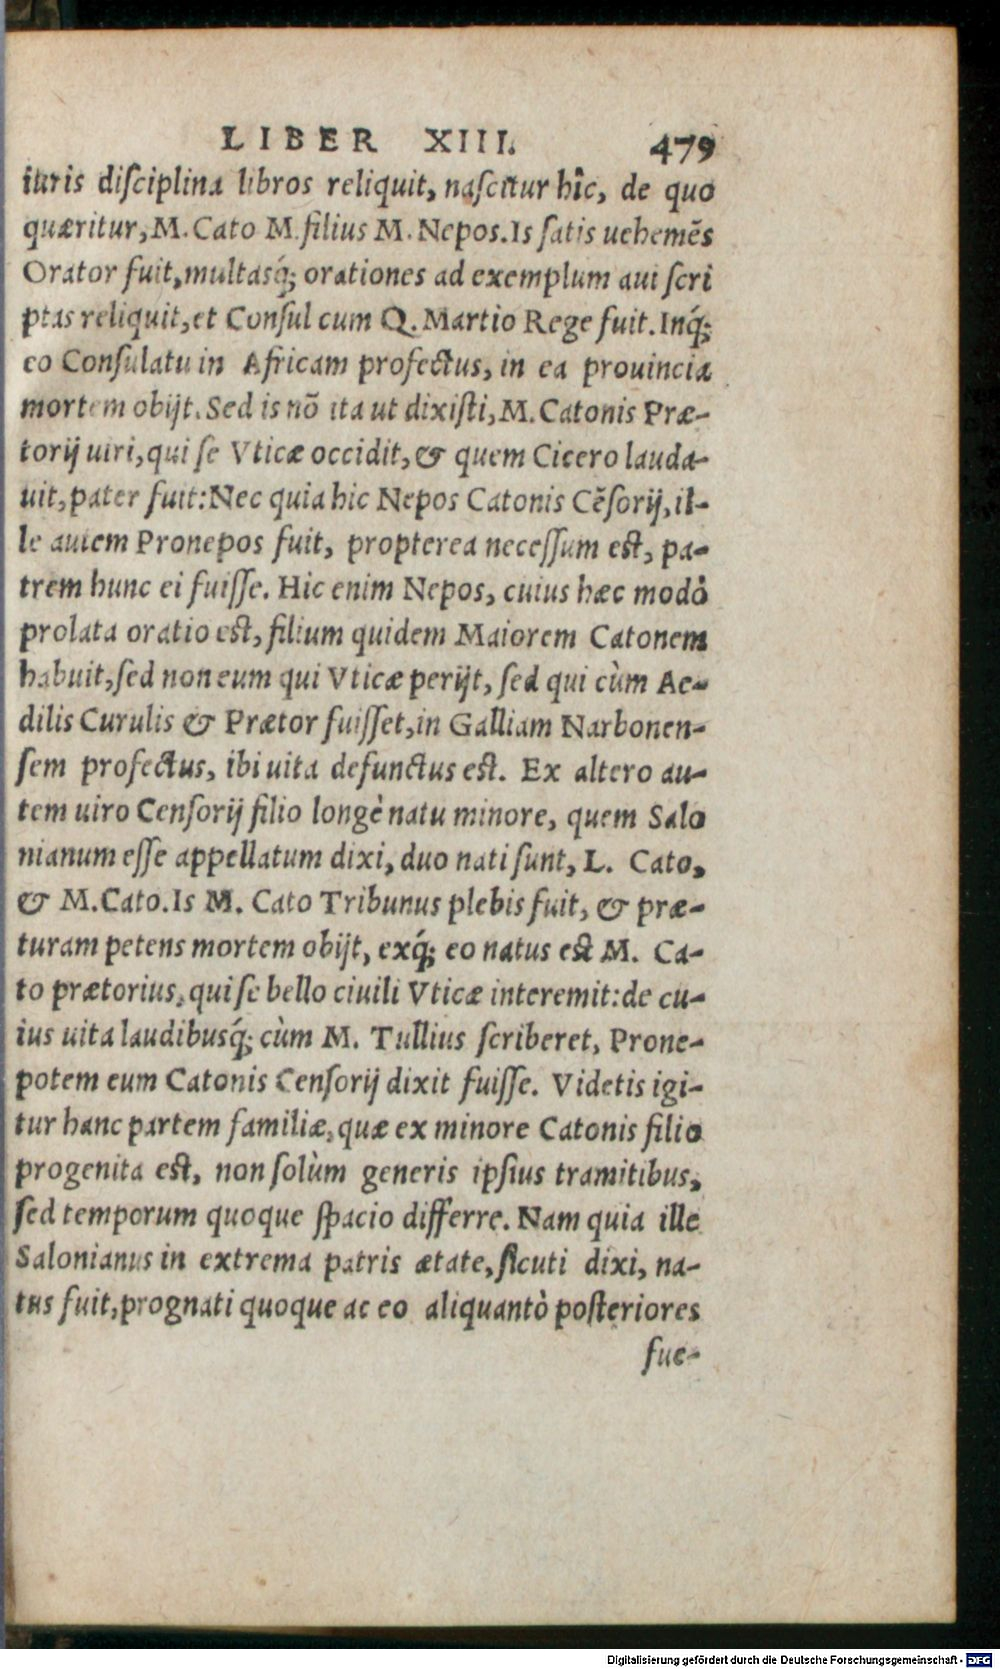 LIBER XIII. 479
iuris disciplina libros reliquit, nascitur hîc, de quo
quæritur, M. Cato M. filius M. Nepos. Is satis uehemẽs
Orator fuit, multasq́; orationes ad exemplum aui scri
ptas reliquit, et Consul cum Q. Martio Rege fuit. Inq́;
eo Consulatu in Africam profectus, in ea prouincia
mortem obijt. Sed is nõ ita ut dixisti, M. Catonis Præ-
torij uiri, qui se Vticæ occidit, & quem Cicero lauda-
uit, pater fuit: Nec quia hic Nepos Catonis Cẽsorij, il-
le autem Pronepos fuit, propterea necessum est, pa-
trem hunc ei fuisse. Hic enim Nepos, cuius hæc modò
prolata oratio est, filium quidem Maiorem Catonem
habuit, sed non eum qui Vticæ perijt, sed qui cùm Ae-
dilis Curulis & Prætor fuisset, in Galliam Narbonen-
sem profectus, ibi uita defunctus est. Ex altero au-
tem uiro Censorij filio longè natu minore, quem Salo
nianum esse appellatum dixi, duo nati sunt, L. Cato,
& M. Cato. Is M. Cato Tribunus plebis fuit, & præ-
turam petens mortem obijt, exq́; eo natus est M. Ca-
to prætorius, qui se bello ciuili Vticæ interemit: de cu-
ius uita laudibusq́; cùm M. Tullius scriberet, Prone-
potem eum Catonis Censorij dixit fuisse. Videtis igi-
tur hanc partem familiæ, quæ ex minore Catonis filio
progenita est, non solùm generis ipsius tramitibus,
sed temporum quoque spacio differre. Nam quia ille
Salonianus in extrema patris ætate, sicuti dixi, na-
tus fuit, prognati quoque ac eo aliquantò posteriores
fue-
Digitalisierung gefördert durch die Deutsche Forschungsgemeinschaft - DFG